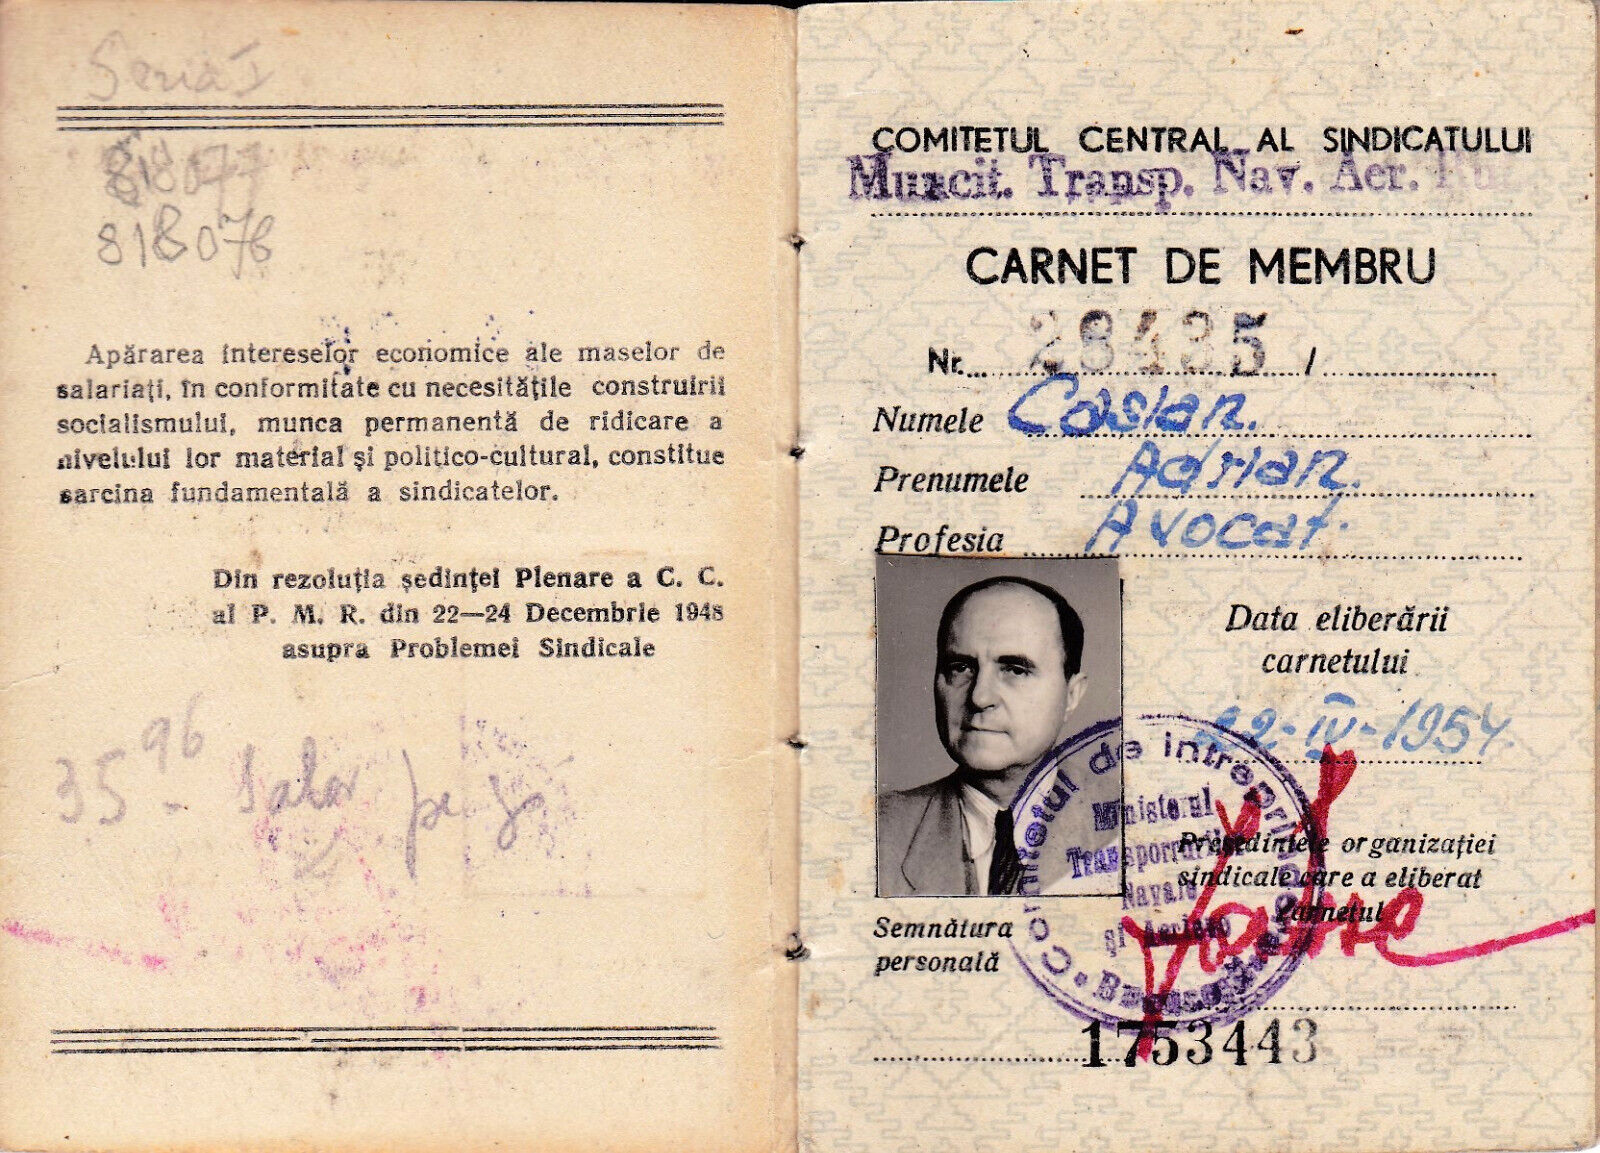 Seria I
818077
818078
Apărarea intereselor economice ale maselor de
salariați, în conformitate cu necesitățile construirii
socialismului, munca permanentă de ridicare a
nivelului lor material și politico-cultural, constitue
sarcina fundamentală a sindicatelor.
Din rezoluția ședinței Plenare a C. C.
al P. M. R. din 22—24 Decembrie 1948
asupra Problemei Sindicale
35 96
COMITETUL CENTRAL AL SINDICATULUI
Muncit. Transp. Nav. Aer.
CARNET DE MEMBRU
Nr. 28435 /
Numele Cosian.
Prenumele Adrian.
Profesia Avocat.
Data eliberării
carnetului
22-IV-1954
Președintele organizației
sindicale care a eliberat
carnetul
Semnătura
personală
Comitetul de intreprindere
Ministerul
Transporturilor
Navale
și Aeriene
București
1753443